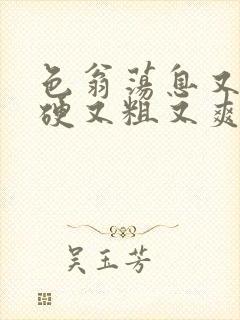 色翁荡息又
硬又粗又爽
吴玉芳